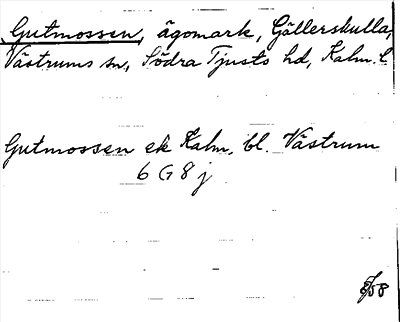 Gutmossen, ägomark, Gällerskulla,
Västrums sn, Södra Tjusts hd, Kalm. l.
Gutmossen ek Kalm. bl. Västrum
6 G 8 j